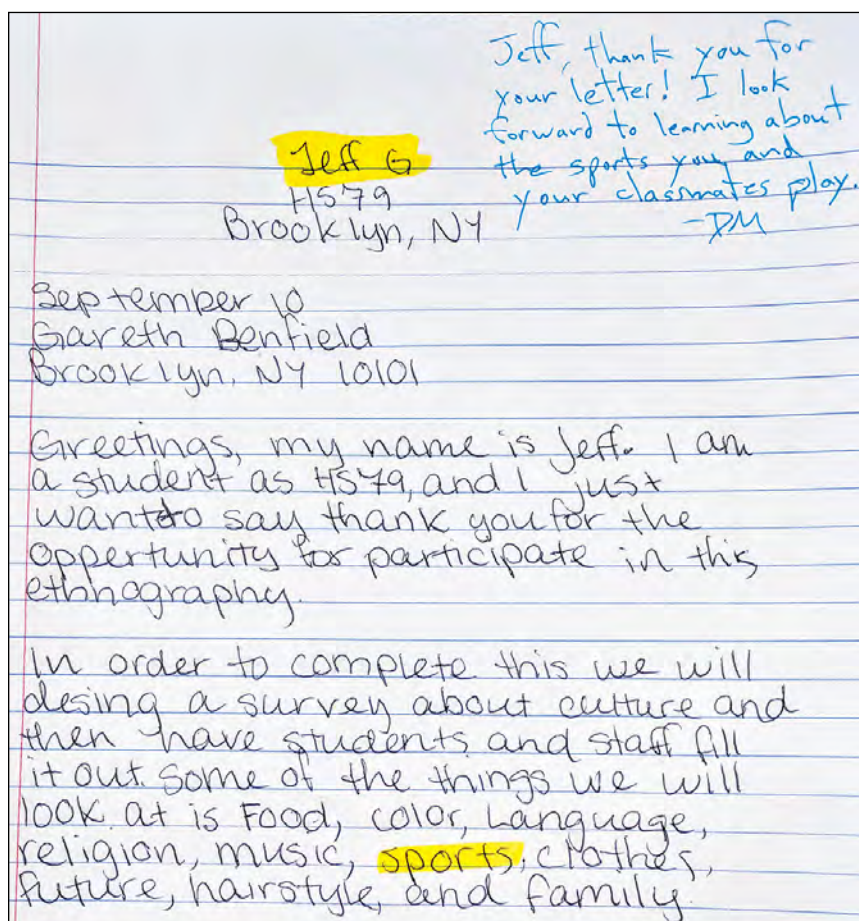 Jeff, thank you for
your letter! I look
forward to learning about
the sports you and
your classmates play.
-DM
Jeff G
HS79
Brooklyn, NY
September 10
Gareth Benfield
Brooklyn, NY 10101
Greetings, my name is Jeff. I am
a student as HS79, and I just
want to say thank you for the
oppertunity for participate in this
ethnography.
In order to complete this we will
desing a survey about culture and
then have students and staff fill
it out. Some of the things we will
look at is Food, color, Language,
religion, music, sports, clothes,
future, hairstyle, and family.